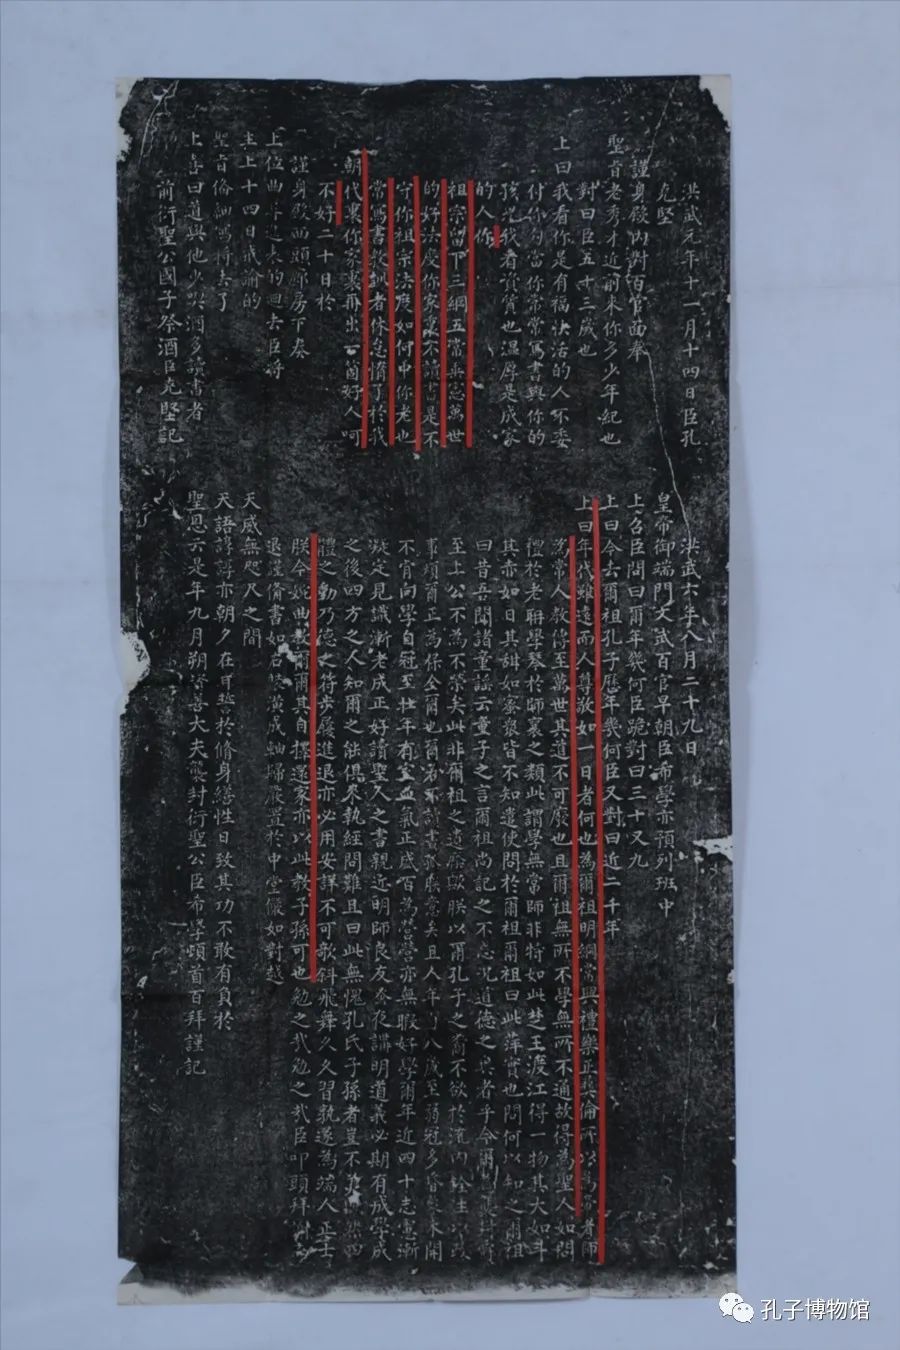 洪武元年十一月十四日臣孔
克堅
謹身殿內對百官面奉
聖旨老秀才近前來你多少年紀也
對曰臣五十三歲也
上曰我看你是有福快活的人不委
付你勾當你常常寫書與你的
孩兒我看資質也溫厚是成家
的人你
祖宗留下三綱五常垂憲萬世
的好法度你家裏不讀書是不
守你祖宗法度如何中你老也
常寫書教訓者休怠惰了於我
朝代裏你家裏再出一箇好人呵
不好二十日於
謹身殿西頭廊房下奏
上位曲阜進表的回去臣將
主上十四日戒諭的
聖旨備細寫將去了
上喜曰道與他少喫酒多讀書者
前衍聖公國子祭酒臣克堅記
洪武六年八月二十九日
皇帝御端門文武百官早朝臣希學亦預列班中
上召臣問曰爾年幾何臣跪對曰三十又九
上曰今去爾祖孔子歷年幾何臣又對曰近二千年
上曰年代雖遠而人尊敬如一日者何也為爾祖明綱常興禮樂正彝倫所以為帝者師
為常人教傳至萬世其道不可廢也且爾祖無所不學無所不通故得為聖人如問
禮於老聃學琴於師襄之類此謂學無常師非特如此楚王渡江得一物其大如斗
其赤如日其甜如蜜眾皆不知遣使問於爾祖爾祖曰此萍實也問何以知之爾祖
曰昔吾聞諸童謠云童子之言爾祖尚記之不忘況道德之具者乎今爾襲封爵
至上公不為不榮矣此非爾祖之遺蔭歟朕以爾孔子之裔不欲於流內銓注以政
事煩爾正為保全爾也爾若不讀書孤朕意矣且人年十八歲至弱冠多昏蒙未開
不肯向學自冠至壯年有室血氣正盛百為營營亦無暇好學爾年近四十志慮漸
凝定見識漸老成正好讀聖人之書親近明師良友蚤夜講明道義必期有成學成
之後四方之人知爾之能俱來執經問難且曰此無愧孔氏子孫者豈不美歟然四
體之動乃德之符步履進退亦必用安詳不可欹斜飛舞久久習熟遂為端人正士
朕今婉曲教爾爾其自擇還家亦以此教子孫可也勉之哉勉之哉臣叩頭拜謝
退謹備書如右裝潢成軸歸嚴置於中堂儼如對越
天威無咫尺之間
天語諄諄亦朝夕在耳恭於脩身繕性日致其功不敢有負於
聖恩云是年九月朔資善大夫襲封衍聖公臣希學頓首百拜謹記
孔子博物馆